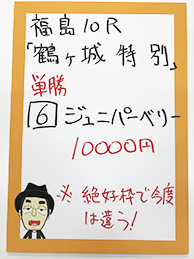 福島10R
「鶴ヶ城特別」
単勝
6 ジュニパーベリー
10000円
※ 絶好枠で今度
は違う!